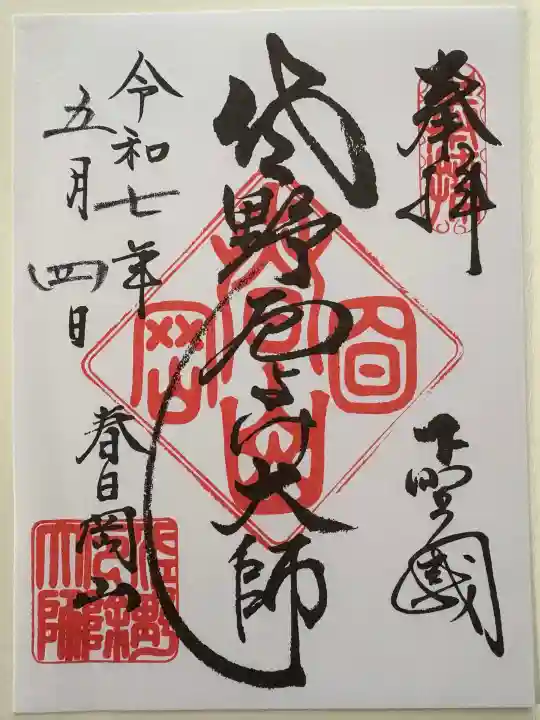 奉拝
下野國
佐野厄よけ大師
春日岡山
令和七年
五月四日